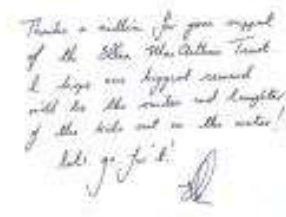 Thanks a million for your support
of the Ellen MacArthur Trust
I hope our biggest reward
will be the smiles and laughter
of the kids out on the water!
Let's go for it!